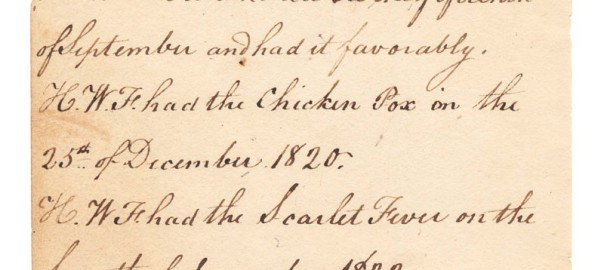 of September and had it favorably.
H.W.F. had the Chicken Pox on the
25th of December 1820.
H.W.F. had the Scarlet Fever on the